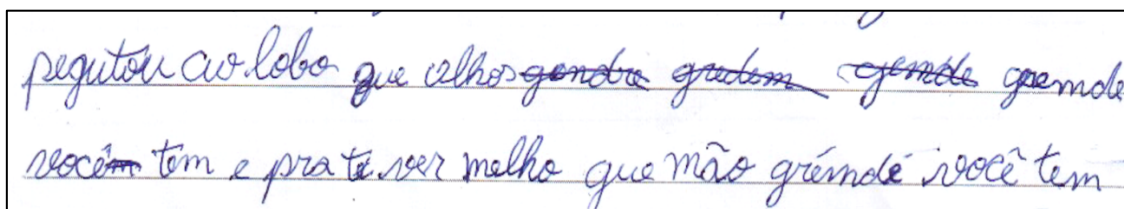 pegutou ao lobo que olhos gondre gredem gemde gremde
você tem e pra te ver melho que mão grémde você tem